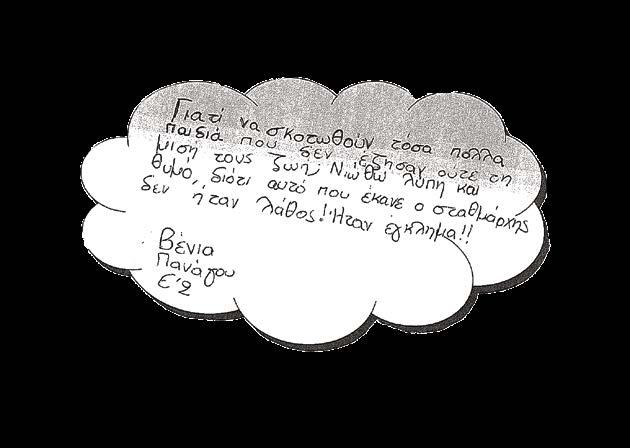 Γιατί να σκοτωθούν τόσα πολλα
παιδιά που δεν έζησαν ούτε τη
μιση τους ζωή; Νιώθω λύπη και
θυμο, διότι αυτό που έκανε ο σταθμάρχης
δεν ήταν λάθος! Ήταν έγκλημα!!
Βένια
Πανάγου
Ε'2